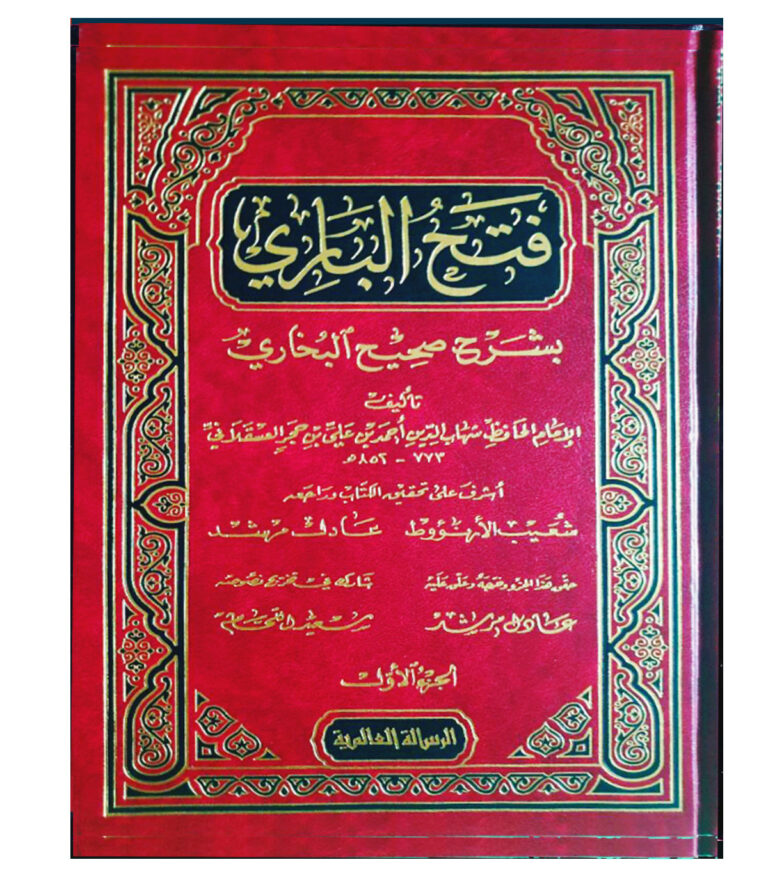 فتح الباري
بشرح صحيح البخاري
تأليف
الإمام الحافظ شهاب الدين أحمد بن علي بن حجر العسقلاني
٧٧٣ - ٨٥٢ هـ
أشرف على تحقيق الكتاب وراجعه
شعيب الأرنؤوط عادل مرشد
حقق هذا الجزء وخرجه وعلق عليه شاركه في تخريج نصوصه
عادل مرشد سعيد اللحام
الجزء الأول
الرسالة العالمية